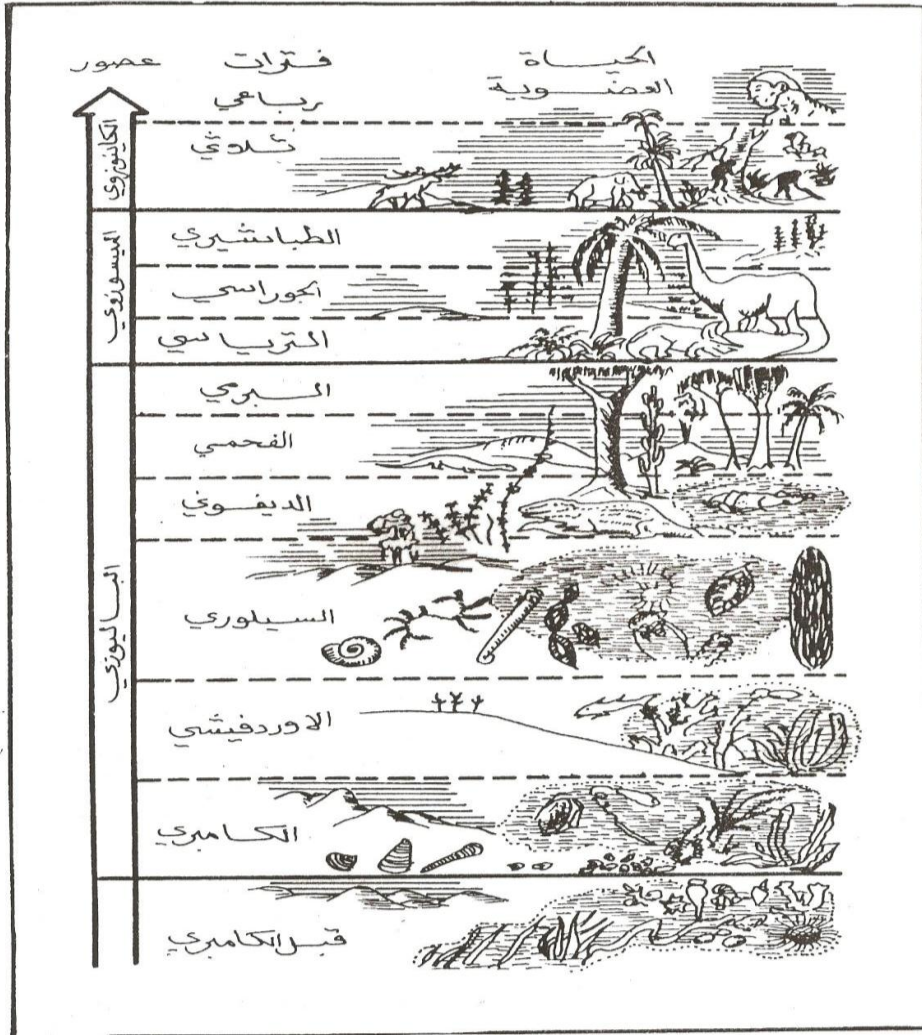 عصور فترات الحياة
العضوية
رباعي
ثلاثي
الكاينوزوي
الطباشيري
الجوراسي
الترياسي
الميسوزوي
البرمي
الفحمي
الديفوني
السيلوري
الاوردفيشي
الكامبري
الباليوزي
قبل الكامبري